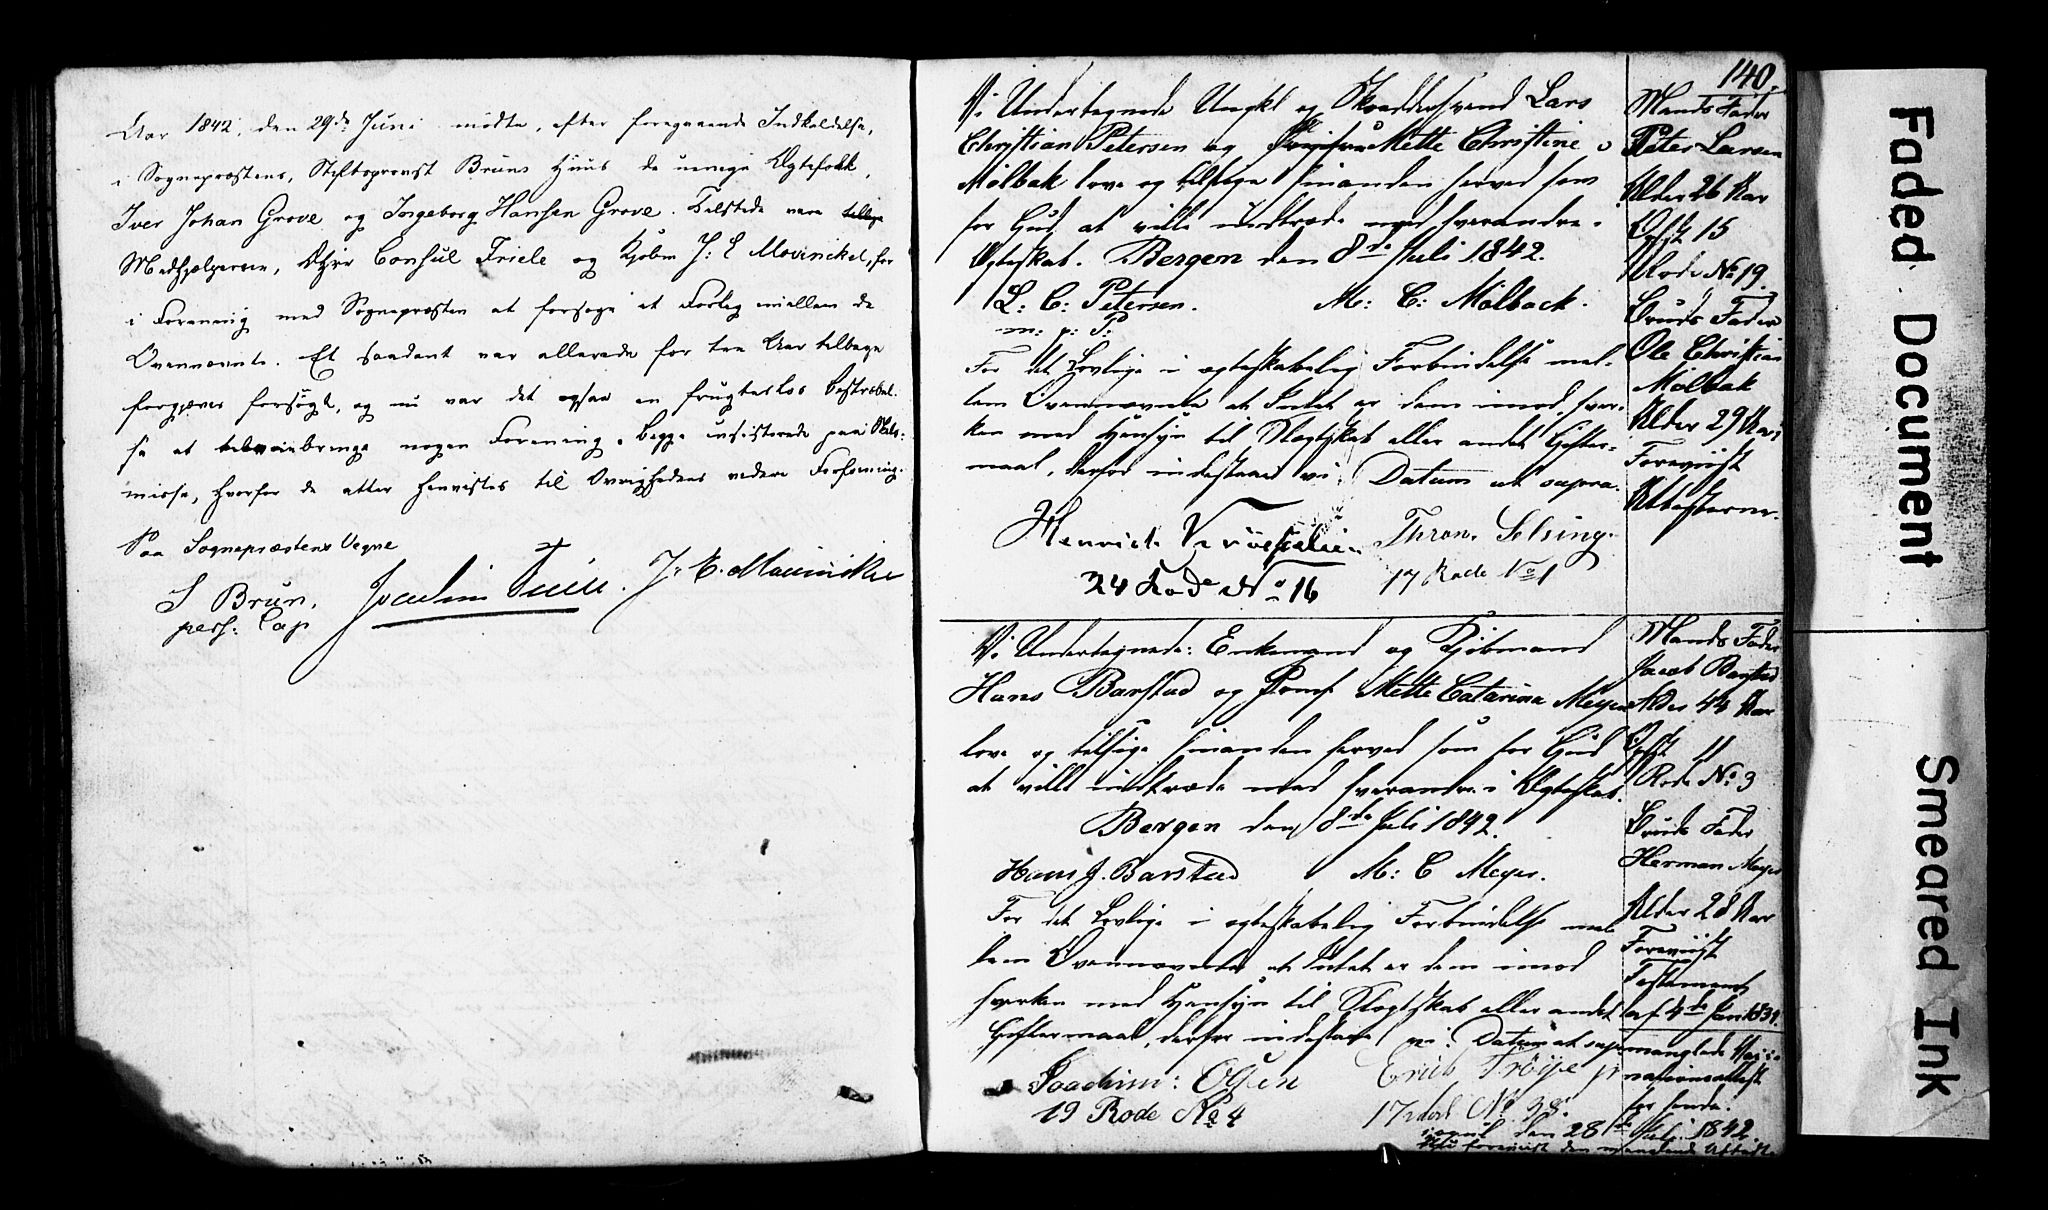 Aar 1842, den 29de Juni mødte, efter foregaaende Indkaldelse,
i Sognepræstens, Stiftsprovst Bruns Huus de uenige Ægtefolk,
Iver Johan Grove og Ingeborg Hansen Grove. Tilstede vare tillige
Medhjælperne, Hr Consul Friele og Kjøbm J: E Mowinckel, for
i Forening med Sognepræsten at forsøge et Forlig mellem de
Ovennævnte. Et saadant var allerede for tre Aar tilbage
forgjæves forsøgt, og nu var det ogsaa en frugtesløs Bestræbel-
se at tilveiebringe nogen Forening. Begge insisterede paa Skils-
misse, hvorfor de atter henvistes til Øvrighedens videre Foranstaltning.
Paa Sognepræstens Vegne
S Brun,
pers: Cap
Joachim Friele
J. E. Mowinckel
140.
Vi Undertegnede Ungkl og Skræddersvend Lars
Christian Petersen og Pige Mette Christine
Mølbak love og tilsige hinanden herved som
for Gud, at ville indtræde med hverandre i
Ægteskab. Bergen den 8de Juli 1842.
L: C: Petersen. M: C: Mølback.
m: p: P:
For det Lovlige i ægteskabelig Forbindelse mel-
lem Ovennævnte at Intet er dem imod, hver-
ken med Hensyn til Slægtskab eller andet Gifter-
maal, derfor indestaae vi. Datum ut supra.
Henrich Thron. Selsing.
24 Rode No 16 17 Rode No 1
Mands Fader
Peter Larsen
Alder 26 Aar
Cfst 15
Rode No 19.
Bruds Fader
Ole Christian
Mølbak
Alder 29 Aar
Foreviist
Attesterne.
Vi Undertegnede: Enkemand og Kjøbmand
Hans Barstad og Jomf Mette Catarina Meyer
love og tilsige hinanden herved som for Gud
at ville indtræde med hverandre i Ægteskab.
Bergen den 8de Juli 1842.
Hans J. Barstad M: C Meyer.
For det Lovlige i ægteskabelig Forbindelse mel
lem Ovennævnte at Intet er dem imod
hverken med Hensyn til Slægtskab eller andet
Giftermaal, derfor indestaae vi. Datum ut supra
Joachim: Olsen Erich Trøye
19 Rode No 4 17 Rode No 38.
Mands Fader
Jacob Barstad
Alder 44 Aar
Cfst 11
Rode No 3
Bruds Fader
Herman Meyer
Alder 28 Aar
Foreviist
Testament
af 4de Jan 1839.
manglede Vacci-
nationsattest
for hende.
den 28de Juli 1842.
foreviist den manglende Attest.
Faded Document
Smeared Ink